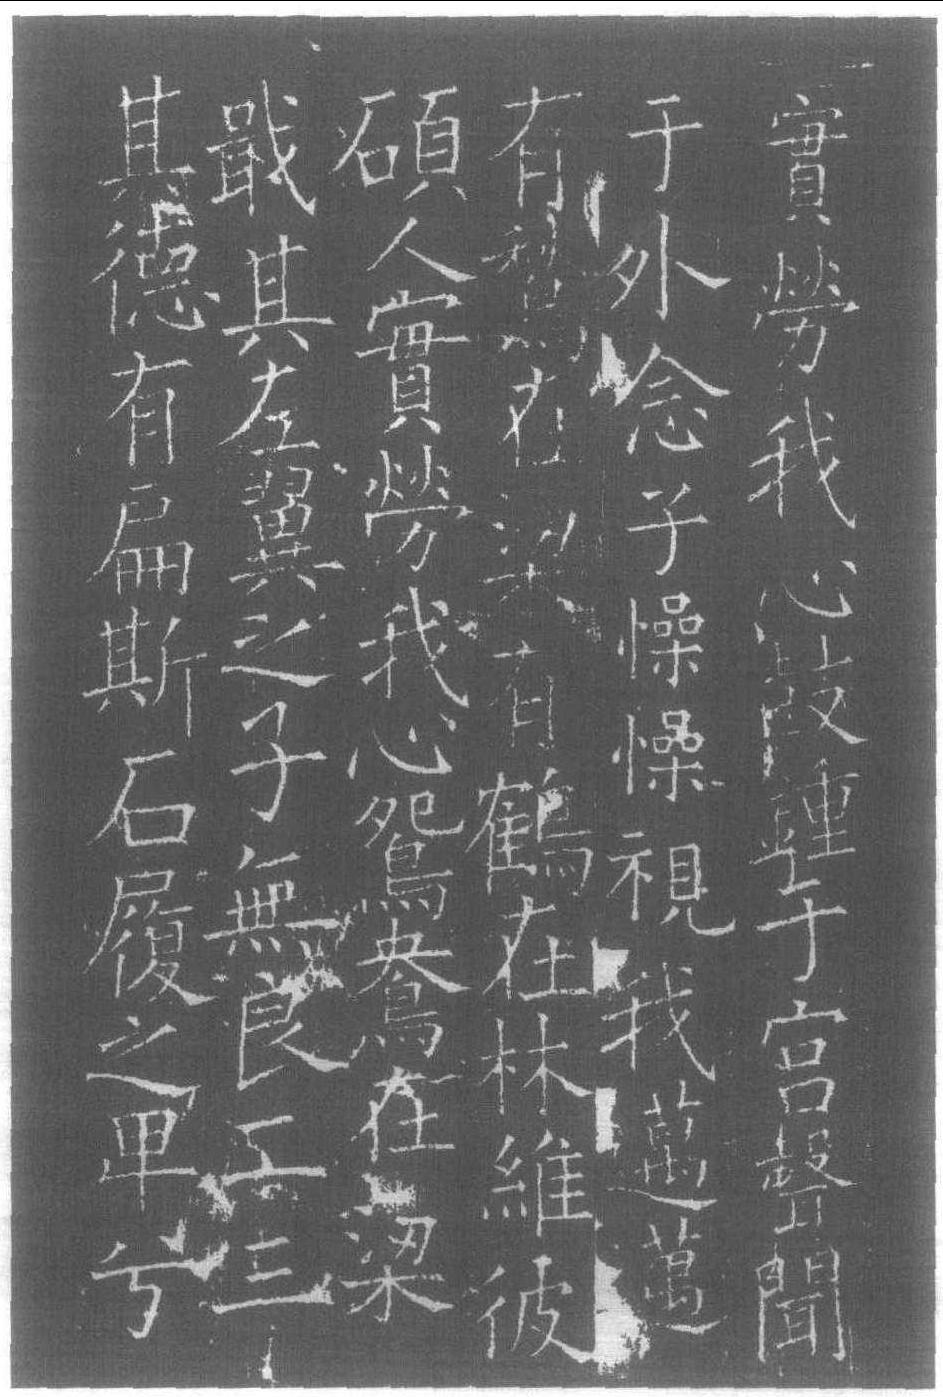 實勞我心鼓鍾于宮聲聞
于外念子懆懆視我邁邁
有鶖在梁有鶴在林維彼
碩人實勞我心鴛鴦在梁
戢其左翼之子無良二三
其德有扁斯石履之卑兮